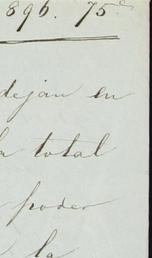 896. 75c
dejan en
a total
poder
la